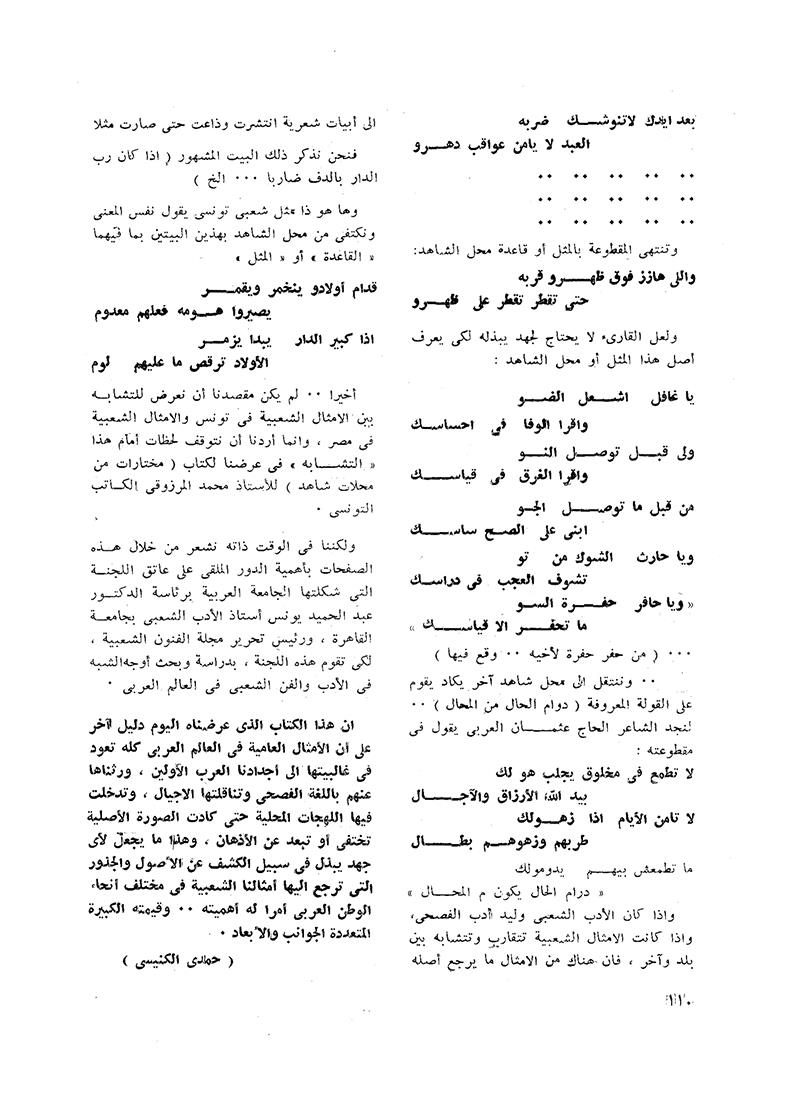 بعد ايدك لاتنوشك ضربه
العبد لا يامن عواقب دهرو
٠٠ ٠٠ ٠٠ ٠٠ ٠٠
٠٠ ٠٠ ٠٠ ٠٠ ٠٠
٠٠ ٠٠ ٠٠ ٠٠ ٠٠
وتنتهى المقطوعة بالمثل أو قاعدة محل الشاهد:
واللى هازز فوق ظهرو قربه
حتى تقطر تقطر على ظهرو
ولعل القارىء لا يحتاج لجهد يبذله لكى يعرف
أصل هذا المثل أو محل الشاهد :
يا غافل اشعل الضو
واقرا الوفا فى احساسك
ولى قبل توصل النو
واقرا الغرق فى قياسك
من قبل ما توصل الجو
ابنى على الصح ساسك
ويا حارث الشوك من تو
تشوف العجب فى دراسك
« ويا حافر حفرة السو
ما تحفر الا قياسك »
٠٠٠ ( من حفر حفرة لأخيه ٠٠ وقع فيها )
٠٠ وننتقل الى محل شاهد آخر يكاد يقوم
على القولة المعروفة ( دوام الحال من المحال ) ٠٠
لنجد الشاعر الحاج عثمان العربى يقول فى
مقطوعته :
لا تطمع فى مخلوق يجلب هو لك
بيد الله الأرزاق والآجال
لا تامن الأيام اذا زهولك
طربهم وزهوهم بطال
ما تطمعش بيهم يدومولك
« درام الحال يكون م المحال »
واذا كان الأدب الشعبى وليد أدب الفصحى،
واذا كانت الامثال الشعبية تتقارب وتتشابه بين
بلد وآخر ، فان هناك من الامثال ما يرجع أصله
الى أبيات شعرية انتشرت وذاعت حتى صارت مثلا
فنحن نذكر ذلك البيت المشهور ( اذا كان رب
الدار بالدف ضاربا ٠٠٠ الخ )
وها هو ذا مثل شعبى تونسى يقول نفس المعنى
ونكتفى من محل الشاهد بهذين البيتين بما فيهما
« القاعدة » أو « المثل »
قدام أولادو يتخمر ويقمر
يصيروا هومه فعلهم معدوم
اذا كبير الدار يبدا يزمر
الأولاد ترقص ما عليهم لوم
أخيرا ٠٠ لم يكن مقصدنا أن نعرض للتشابه
بين الامثال الشعبية فى تونس والامثال الشعبية
فى مصر ، وانما أردنا أن نتوقف لحظات أمام هذا
« التشابه » فى عرضنا لكتاب ( مختارات من
محلات شاهد ) للأستاذ محمد المرزوقى الكاتب
التونسى ٠
ولكننا فى الوقت ذاته نشعر من خلال هذه
الصفحات بأهمية الدور الملقى على عاتق اللجنة
التى شكلتها الجامعة العربية برئاسة الدكتور
عبد الحميد يونس أستاذ الأدب الشعبى بجامعة
القاهرة ، ورئيس تحرير مجلة الفنون الشعبية ،
لكى تقوم هذه اللجنة ، بدراسة وبحث أوجه الشبه
فى الأدب والفن الشعبى فى العالم العربى ٠
ان هذا الكتاب الذى عرضناه اليوم دليل آخر
على أن الأمثال العامية فى العالم العربى كله تعود
فى غالبيتها الى أجدادنا العرب الأولين ، ورثناها
عنهم باللغة الفصحى وتناقلتها الاجيال ، وتدخلت
فيها اللهجات المحلية حتى كادت الصورة الأصلية
تختفى أو تبعد عن الأذهان ، وهذا ما يجعل لأى
جهد يبذل فى سبيل الكشف عن الأصول والجذور
التى ترجع اليها أمثالنا الشعبية فى مختلف أنحاء
الوطن العربى أمرا له أهميته ٠٠ وقيمته الكبيرة
المتعددة الجوانب والأبعاد ٠
( حمادى الكنيسى )
١١٠